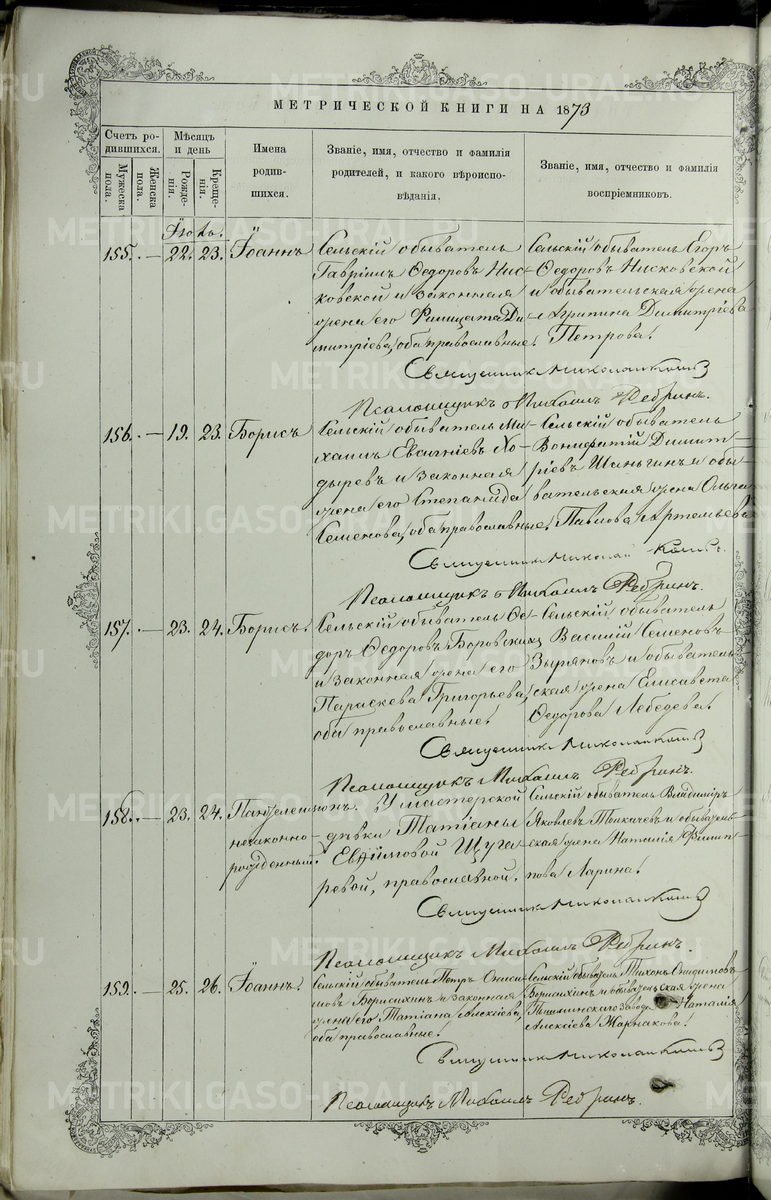 МЕТРИЧЕСКОЙ КНИГИ НА 1873
Счетъ ро-
дившихся.
Мужеска
пола.
Женска
пола.
Мѣсяцъ
и день
Рожде-
нія.
Креще-
нія.
Имена
родив-
шихся.
Званіе, имя, отчество и фамилія
родителей, и какого вѣроиспо-
вѣданія.
Званіе, имя, отчество и фамилія
воспріемниковъ.
Іюль.
155. — 22. 23. Іоаннъ
Сельскій обыватель
Гавріилъ Ѳедоровъ Нис-
ковской и законная
жена его Фелицата Ди-
митріева, оба православные.
Сельскій обыватель Егоръ
Ѳедоровъ Нисковской
и обывательская жена
Агрипина Димитріева
Петрова.
Священник Николай
Псаломщикъ Михаилъ Ребринъ.
156. — 19. 23. Борисъ
Сельскій обыватель Ми-
хаилъ Евгеніевъ Хо-
дыревъ и законная
жена его Степанида
Семенова, оба православные.
Сельскій обыватель
Вонифатій Димит-
ріевъ Шаньгинъ и обы-
вательская жена Ольга
Павлова Артемьева
Священник Николай
Псаломщикъ Михаилъ Ребринъ.
157. — 23. 24. Борисъ.
Сельскій обыватель Ѳе-
доръ Ѳедоровъ Боровскихъ
и законная жена его
Параскева Григорьева,
оба православные.
Сельскій обыватель
Василій Семеновъ
Зыряновъ и обыватель-
ская жена Елисавета
Ѳедорова Лебедева.
Священник Николай
Псаломщикъ Михаилъ Ребринъ.
158. — 23. 24. Пантелеимонъ.
незаконно-
рожденный.
У мастерской
дѣвки Татіаны
Евѳимовой Щуга-
ревой, православной.
Сельскій обыватель Владиміръ
Яковлевъ Толкачевъ и обыватель-
ская жена Наталія Филип-
пова Ларина.
Священник Николай
Псаломщикъ Михаилъ Ребринъ.
159. — 25. 26. Іоаннъ.
Сельскій обыватель Петръ Ониси-
мовъ Борисихинъ и законная
жена его Татіана Алексіева,
оба православные.
Сельскій обыватель Тихонъ Онисимовъ
Борисихинъ и обывательская жена
Пышминскаго завода Наталія
Алексіева Жарнакова.
Священник Николай
Псаломщикъ Михаилъ Ребринъ.
METRIKI.GASO-URAL.RU